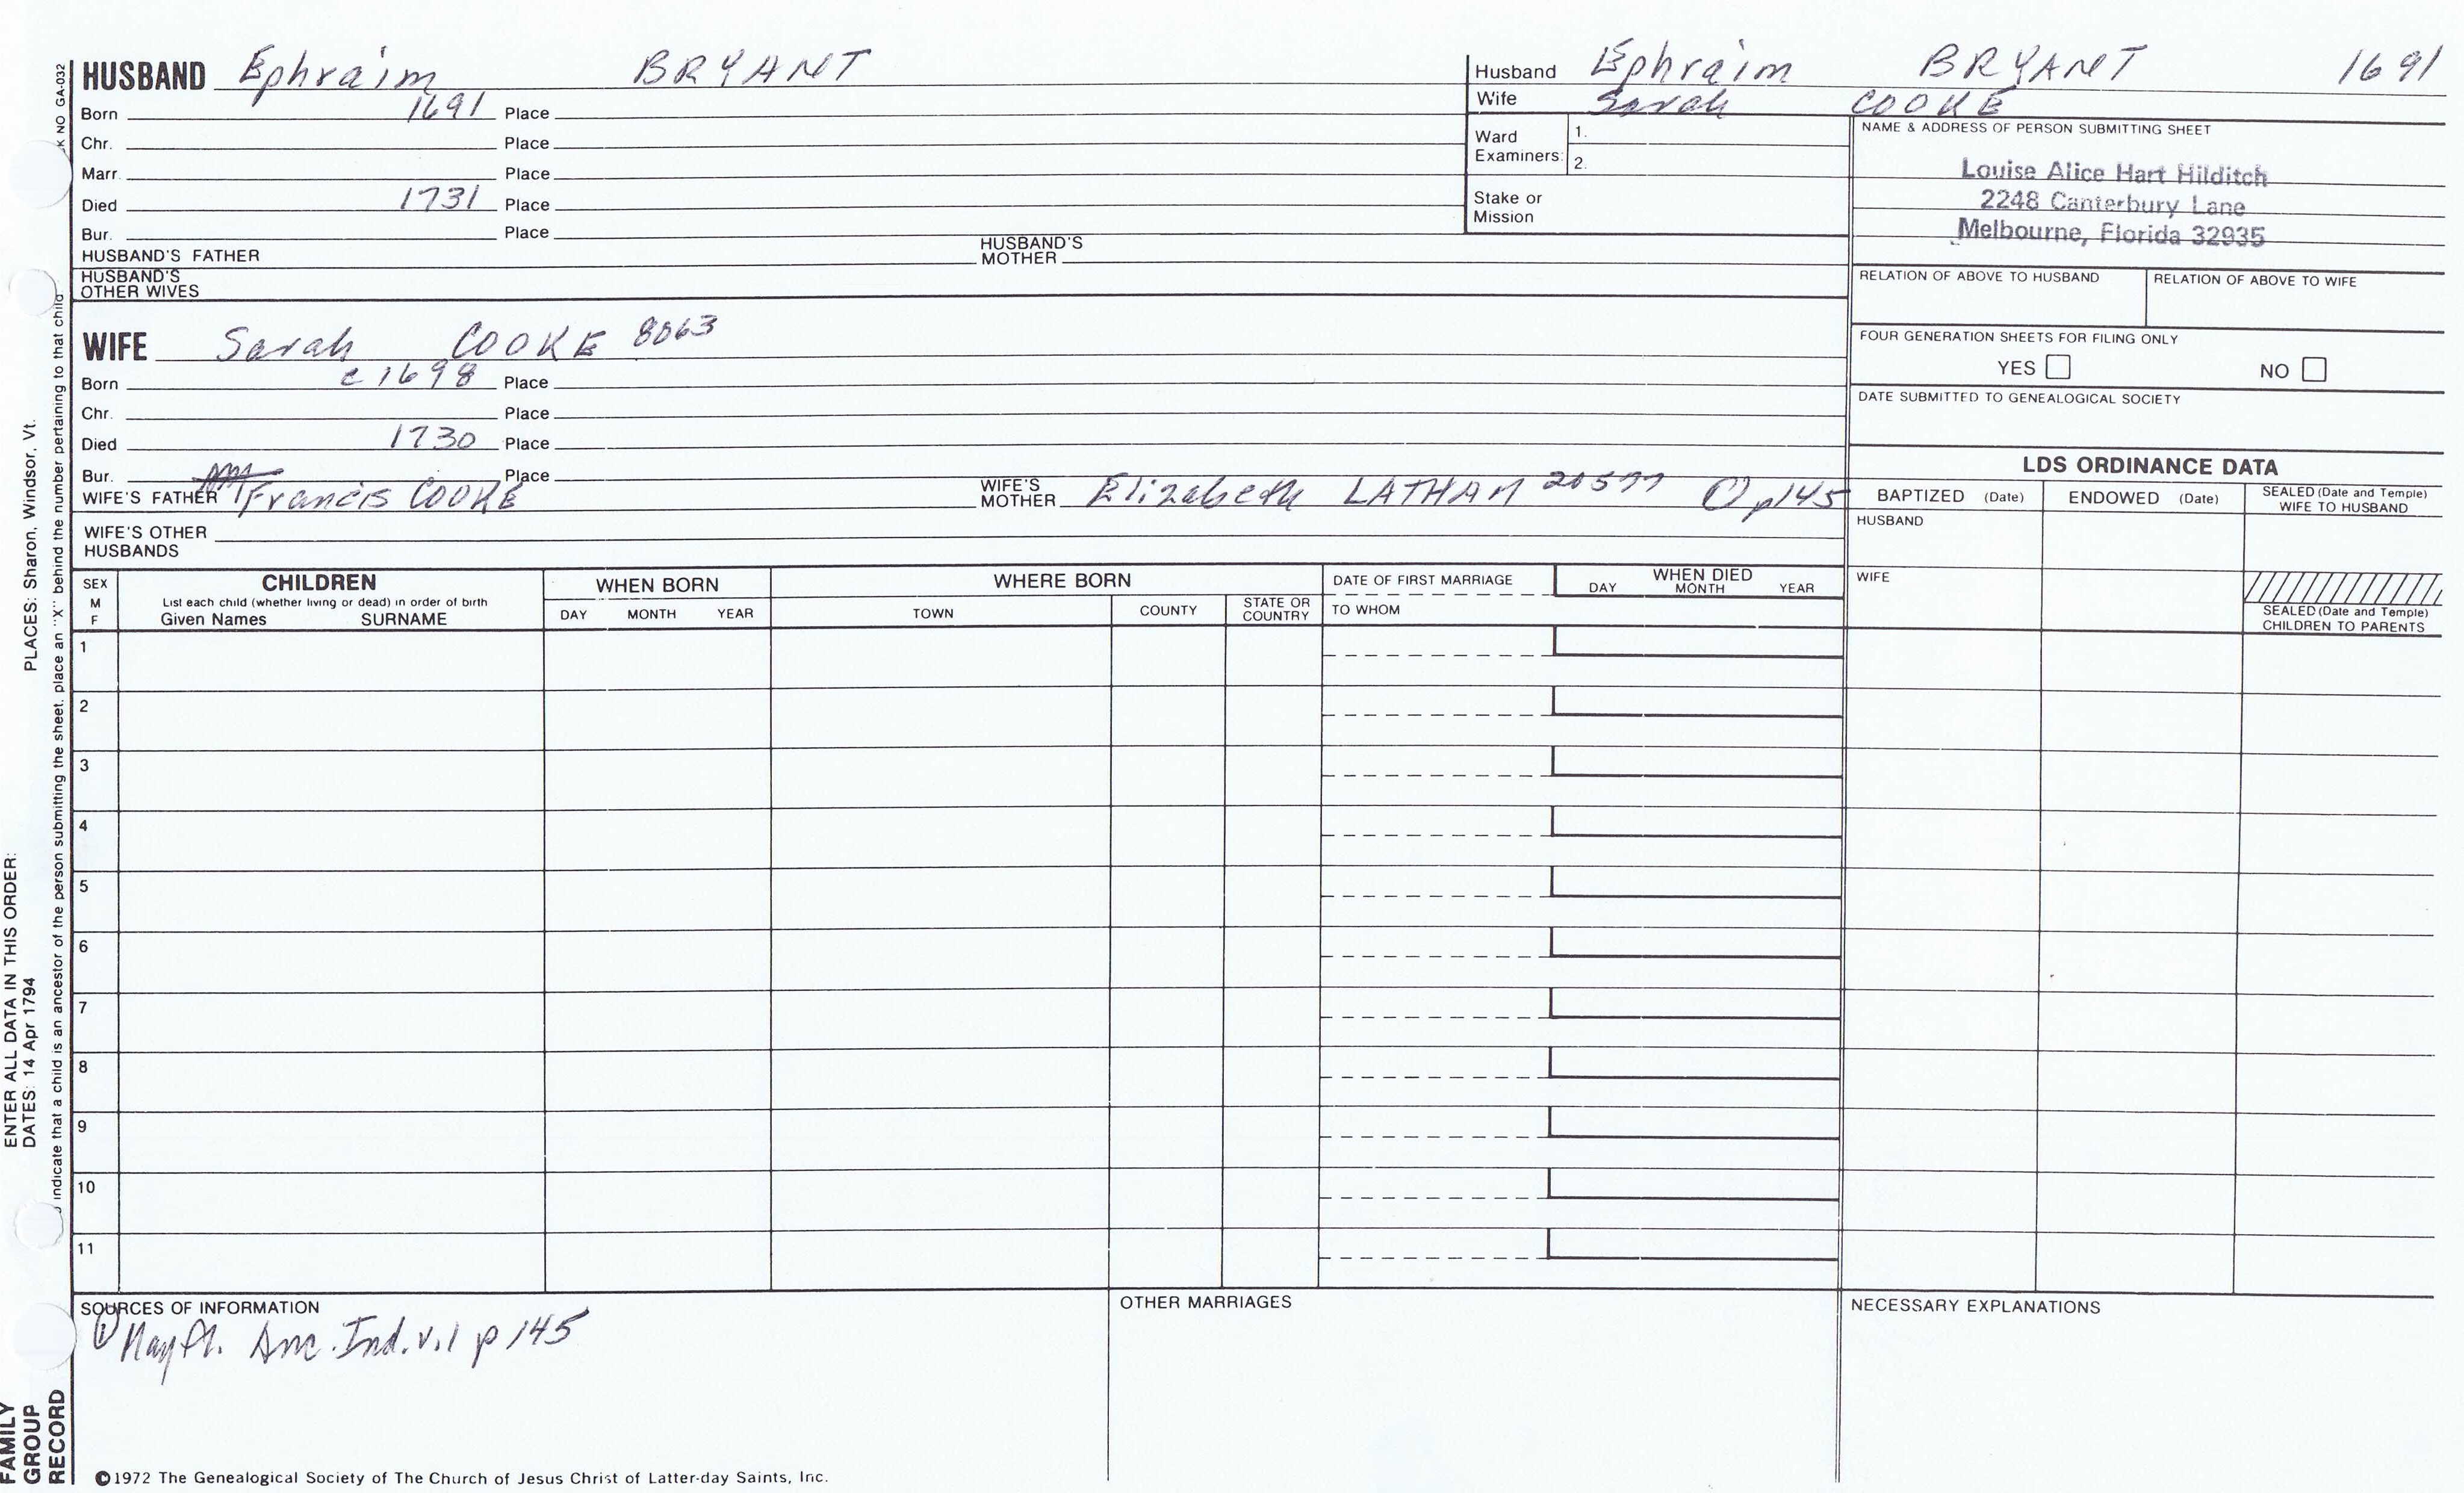 HUSBAND Ephraim BRYANT
Born 1691 Place
Chr. Place
Marr. Place
Died 1731 Place
Bur. Place
HUSBAND'S FATHER HUSBAND'S MOTHER
HUSBAND'S OTHER WIVES
Husband Ephraim BRYANT 1691
Wife Sarah COOKE
Ward Examiners: 1.
2.
Stake or Mission
NAME & ADDRESS OF PERSON SUBMITTING SHEET
Louise Alice Hart Hilditch
2248 Canterbury Lane
Melbourne, Florida 32935
RELATION OF ABOVE TO HUSBAND RELATION OF ABOVE TO WIFE
FOUR GENERATION SHEETS FOR FILING ONLY
YES NO
DATE SUBMITTED TO GENEALOGICAL SOCIETY
WIFE Sarah COOKE 8063
Born c 1698 Place
Chr. Place
Died 1730 Place
Bur. Place
WIFE'S FATHER Francis COOKE WIFE'S MOTHER Elizabeth LATHAM 20577 ① p145
WIFE'S OTHER HUSBANDS
LDS ORDINANCE DATA
BAPTIZED (Date) ENDOWED (Date) SEALED (Date and Temple) WIFE TO HUSBAND
HUSBAND
WIFE
SEALED (Date and Temple) CHILDREN TO PARENTS
SEX M F
CHILDREN
List each child (whether living or dead) in order of birth
Given Names SURNAME
WHEN BORN
DAY MONTH YEAR
WHERE BORN
TOWN COUNTY STATE OR COUNTRY
DATE OF FIRST MARRIAGE
TO WHOM
WHEN DIED
DAY MONTH YEAR
1
2
3
4
5
6
7
8
9
10
11
SOURCES OF INFORMATION
① Mayfl. Anc. Ind. v.1 p 145
OTHER MARRIAGES
NECESSARY EXPLANATIONS
©1972 The Genealogical Society of The Church of Jesus Christ of Latter-day Saints, Inc.
FAMILY
GROUP
RECORD
ENTER ALL DATA IN THIS ORDER:
DATES: 14 Apr 1794 PLACES: Sharon, Windsor, Vt.
indicate that a child is an ancestor of the person submitting the sheet, place an "X" behind the number pertaining to that child
NO GA-032